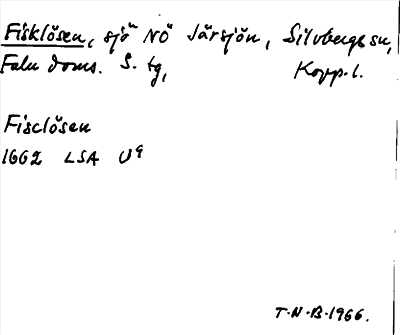 Fisklösen, sjö NÖ Järsjön, Silvbergs sn,
Falu doms. S. tg, Kopp. l.
Fisclösen
1662 LSA U9
T.N.B. 1966.